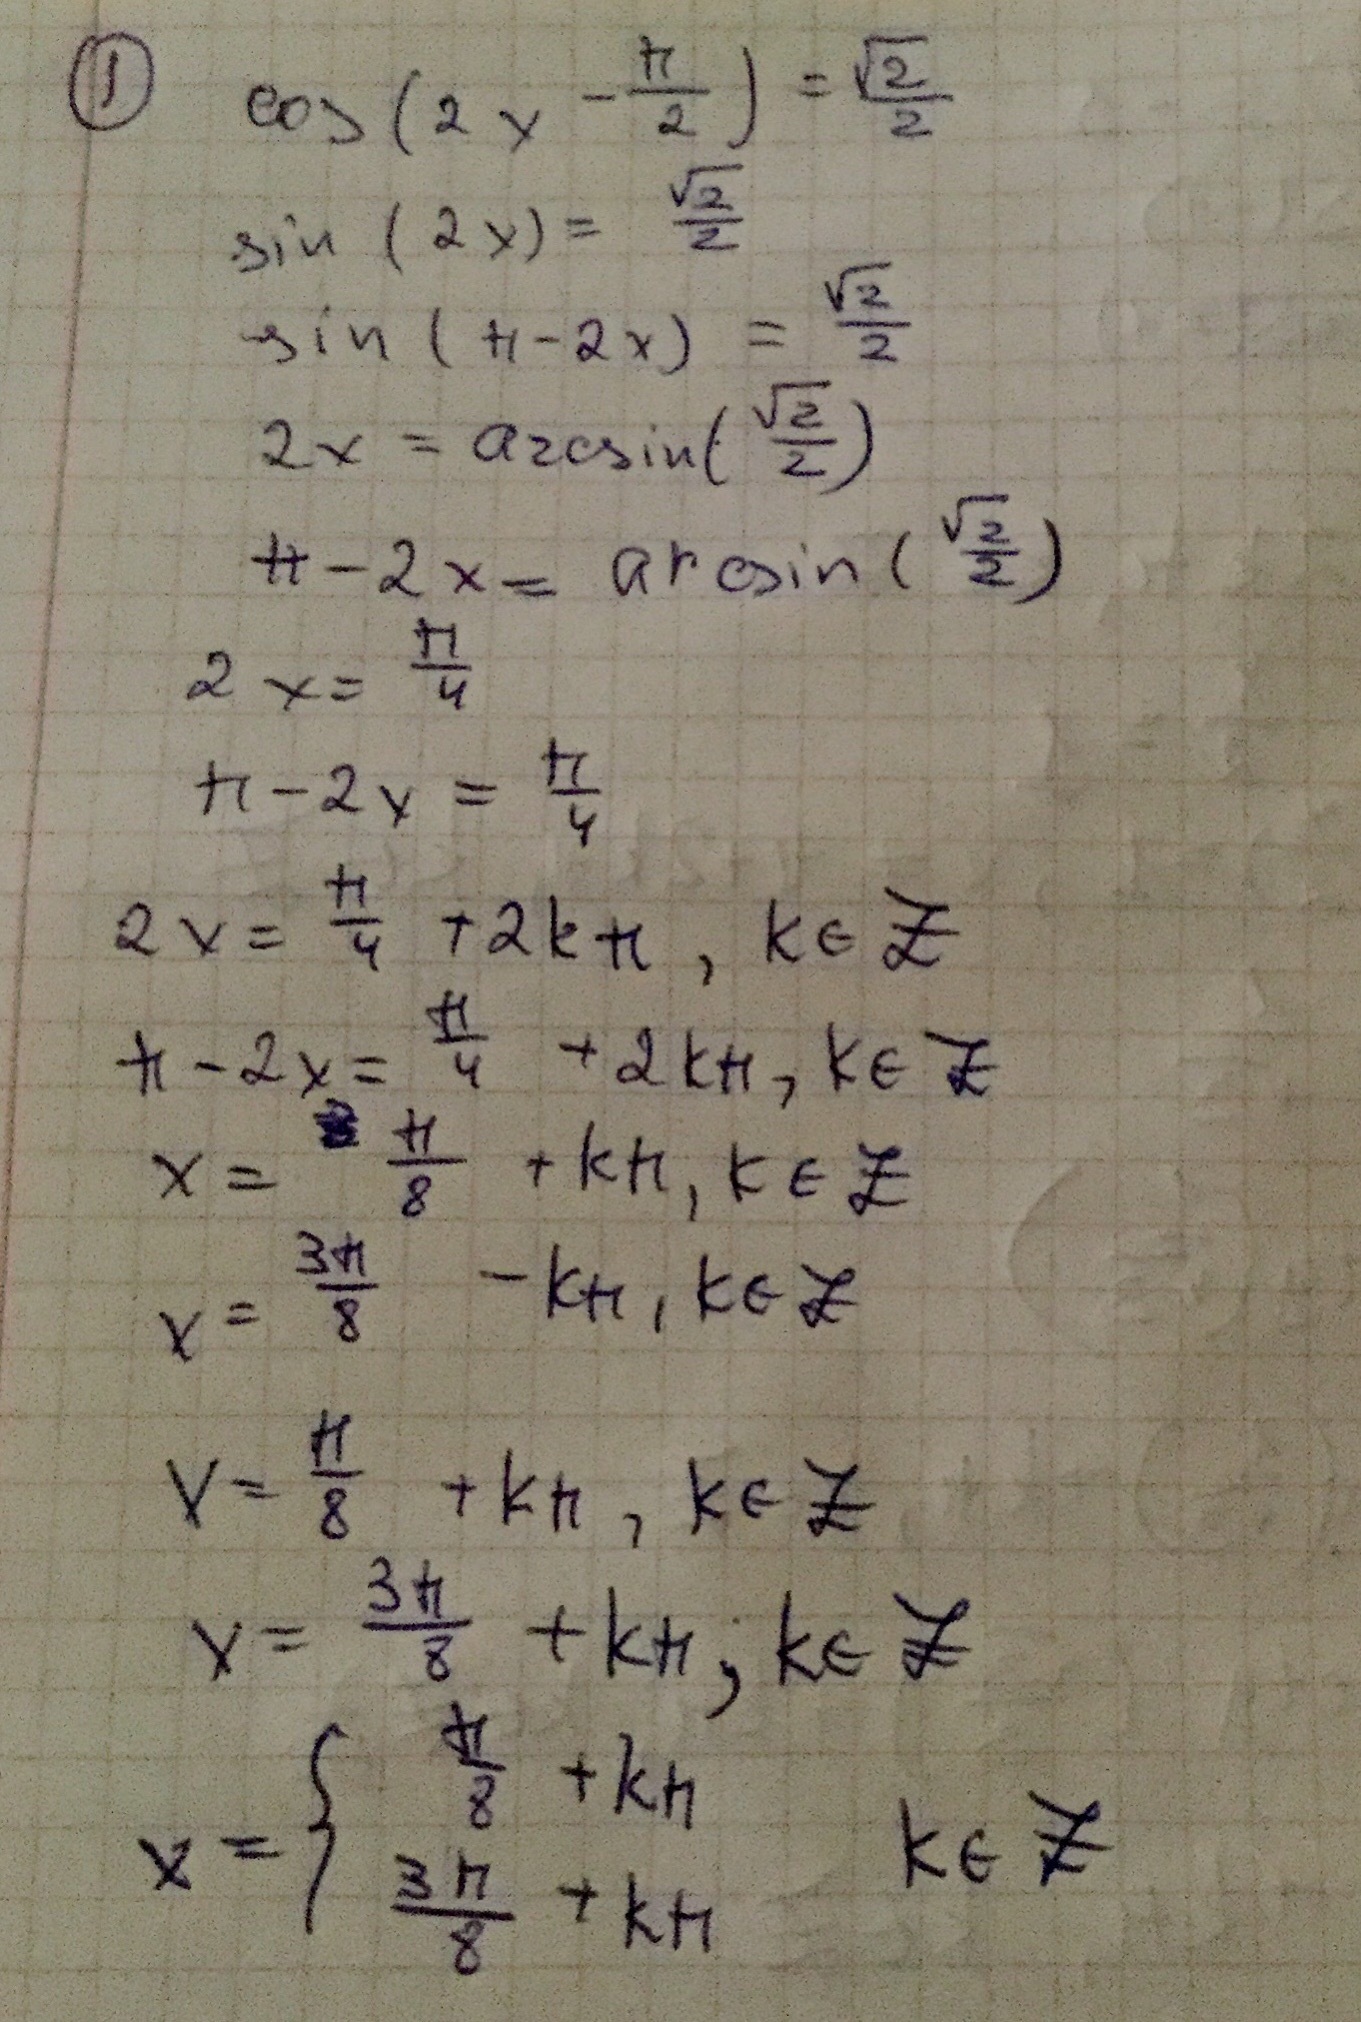 ① cos(2x - π/2) = √2/2
sin (2x) = √2/2
sin (π-2x) = √2/2
2x = arcsin(√2/2)
π-2x = arcsin(√2/2)
2x = π/4
π-2x = π/4
2x = π/4 +2kπ, k∈Z
π-2x = π/4 +2kπ, k∈Z
x = π/8 +kπ, k∈Z
x = 3π/8 -kπ, k∈Z
x = π/8 +kπ, k∈Z
x = 3π/8 +kπ; k∈Z
x = { π/8 +kπ
3π/8 +kπ k∈Z